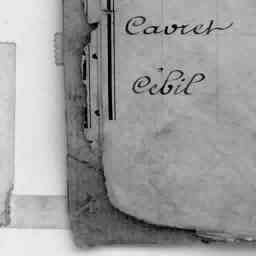 Cavret
Cébil